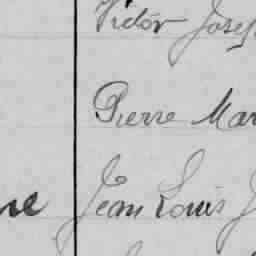 Victor Josep
Pierre Mar
ne Jean Louis J